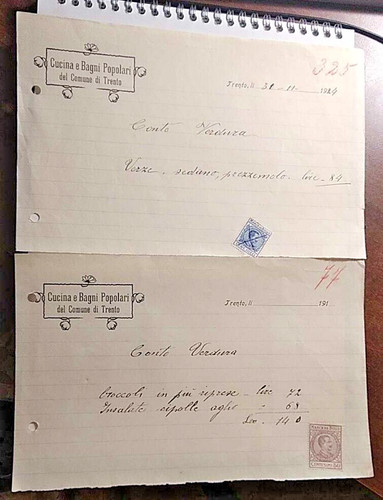 325
Cucina e Bagni Popolari
del Comune di Trento
Trento, li 30-11-1924
Conto Verdura
Verze - sedano, prezzemolo - lire - 84
77
Cucina e Bagni Popolari
del Comune di Trento
Trento, li 191
Conto Verdura
broccoli in più riprese - lire 72
Insalate cipolle aglio - 68
Lire - 140